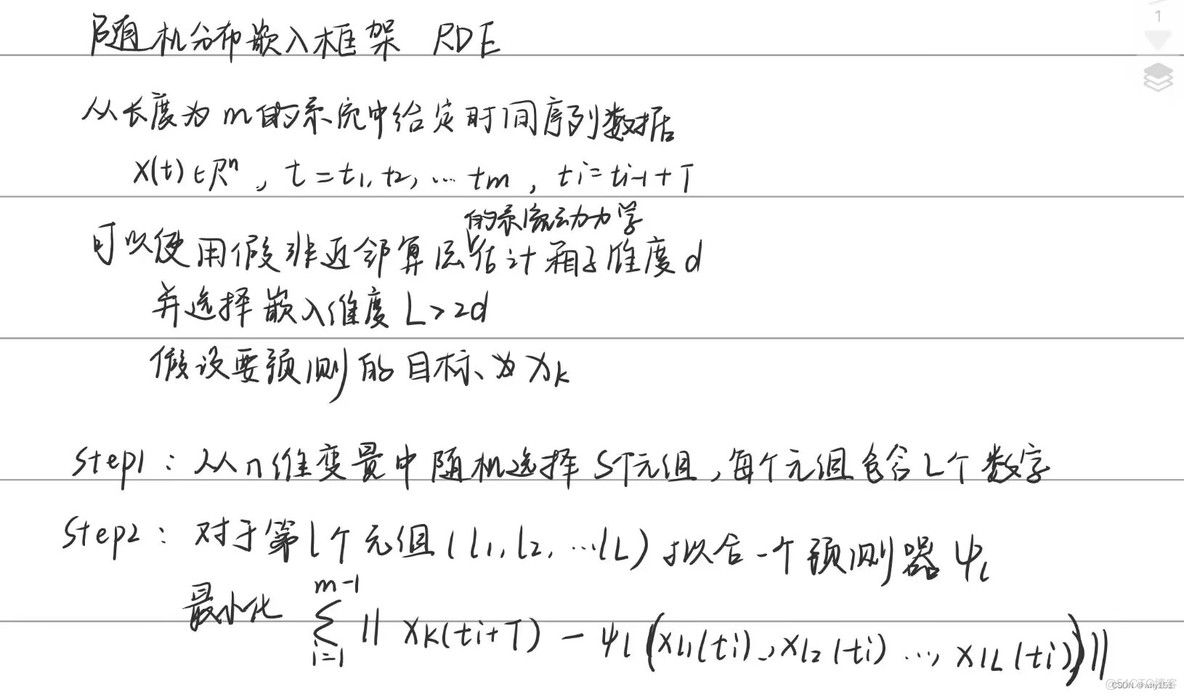 随机分布嵌入框架 RDE
从长度为m的系统中给定时间序列数据
X(t)∈Rⁿ, t=t1,t2,…tm, ti=ti-1+T
的系统动力学
可以使用假非近邻算法估计箱子维度d
并选择嵌入维度L>2d
假设要预测的目标为xk
Step1:从n维变量中随机选择S个元组,每个元组包含L个数字
Step2:对于第l个元组(l1,l2,…lL)拟合一个预测器ψl
最小化 m-1∑i=1 || xk(ti+T) - ψl(xl1(ti),xl2(ti)…,xlL(ti))||
1